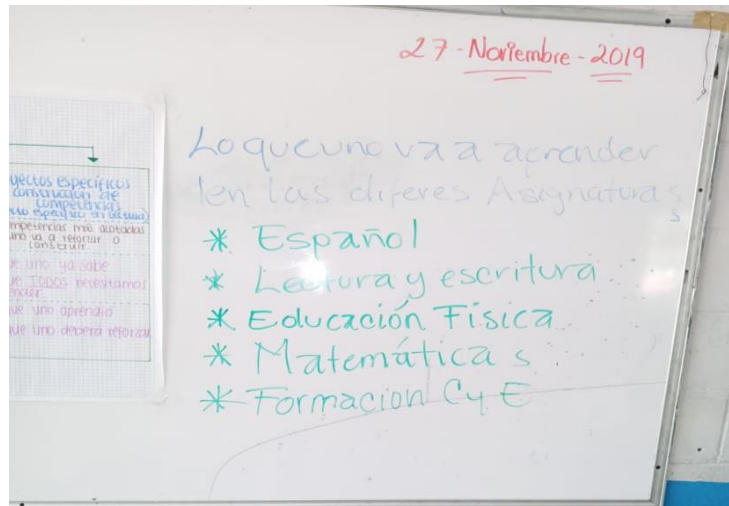 27-Noviembre-2019
Lo que uno va a aprender
en las diferes Asignaturas
s
* Español
* Lectura y escritura
* Educación Física
* Matemáticas
* Formacion C y E
yectos específicos
construcción de
competencias
mpetencias más acotadas
uno va a reforzar o
construir
e uno ya sabe
ue todos necesitamos
nder
ue uno aprendio
ue uno deberá reforzar